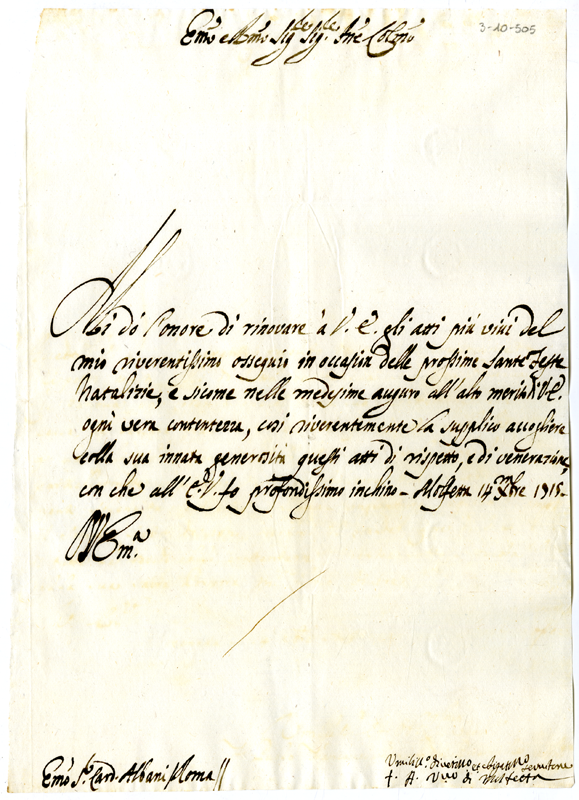 3-10-505
Emo e Rmo Sigre Sigre Pne Colmo
Mi dó l'onore di rinovare à V. E. gli atti più vivi del
mio riverentissimo ossequio in occasion delle prossime Sante Feste
Natalizie, e sicome nelle medesime auguro all'alto merito di V.E.
ogni vera contentezza, così riverentemente la supplico accogliere
colla sua innata generosità questi atti di rispetto, e di venerazione,
con che all' E.V. fo profondissimo inchino - Molfetta 14 Xbre 1715-
V Ema
Emo Sr Card. Albani Roma
Umilissº divmo et obligatmo servitore
f. A. Vvo di Molfetta